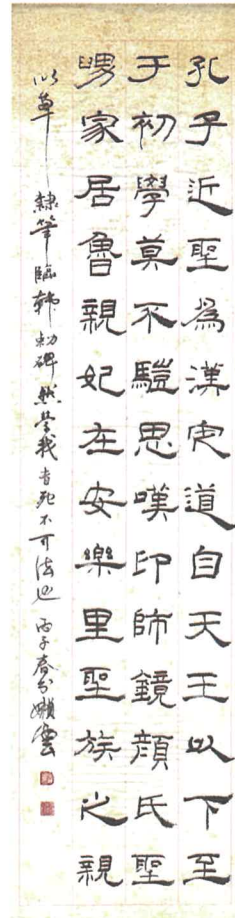 孔子近聖為漢定道自天王以下至
于初學莫不騜思嘆卬師鏡顏氏聖
舅家居魯親妃在安樂里聖族之親
以草隸筆臨韓勑碑然學我者死不可法也 丙子春分 嬾雲